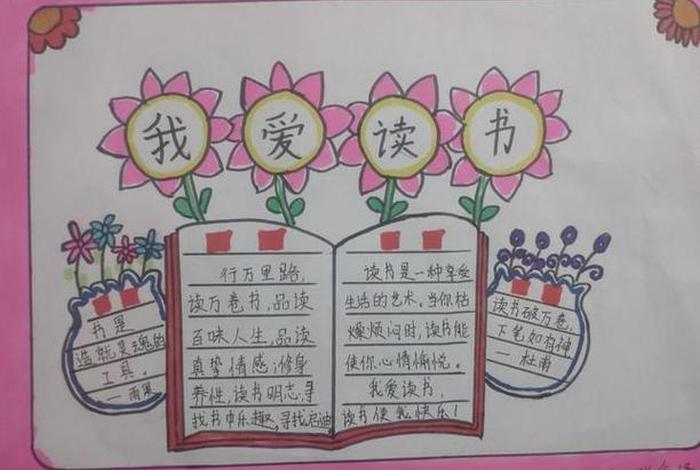 我爱读书
书是
造就灵魂的
工具。
—雨果
行万里路，
读万卷书，品读
百味人生，品读
真挚情感；修身
养性，读书明志，寻
找书中乐趣，寻找启迪
读书是一种享受
生活的艺术。当你枯
燥烦闷时，读书能
使你心情愉悦。
我爱读书，
读书使我快乐！
读书破万卷，
下笔如有神
—杜甫